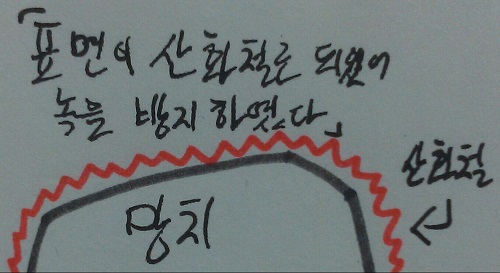 「표면이 산화철로 되있어
녹을 방지 하였다」
산화철
망치